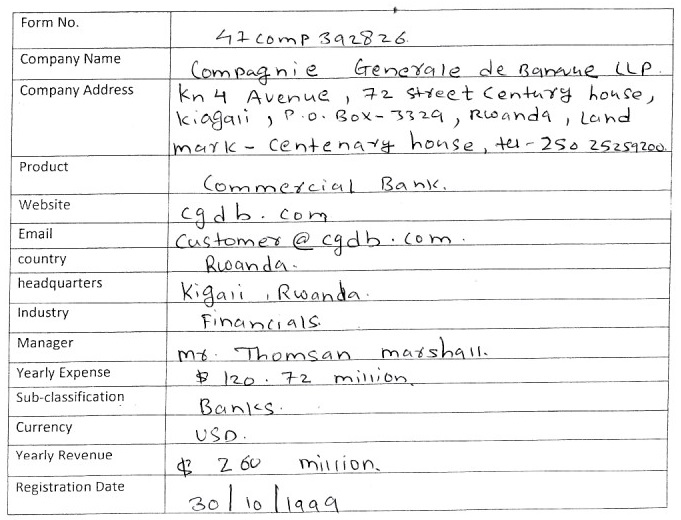 Form No.
47comp392826.
Company Name
Compagnie Generale de Banque LLP.
Company Address
Kn 4 Avenue, 72 street Century house,
Kiagali, P.O. Box-3329, Rwanda, Land
mark - Centenary house, tel-250 25259200.
Product
Commercial Bank.
Website
cgdb.com
Email
Customer@cgdb.com.
country
Rwanda.
headquarters
Kigali, Rwanda.
Industry
Financials.
Manager
Mr. Thomsan marshall.
Yearly Expense
$ 120.72 million.
Sub-classification
Banks.
Currency
USD.
Yearly Revenue
$ 260 million.
Registration Date
30/10/1999